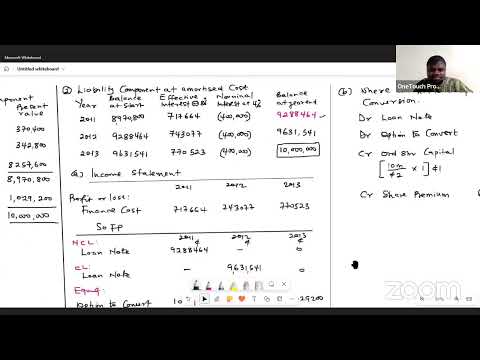 Microsoft Whiteboard
Untitled whiteboard
OneTouch Pro...
ponent Present
value
370,400
342,800
8,257,600
8,970,800
1,029,200
10,000,000
Liability Component at amortised Cost
Year Balance at Start Effective Interest @ 8% Nominal Interest at 4% Balance at year end
2011 8970,800 717664 (400,000) 9288464
2012 9288464 743077 (400,000) 9631,541
2013 9631,541 770523 (400,000) 10,000,000
Income Statement
2011 2012 2013
Profit or loss:
Finance Cost 717664 743077 770523
SoFP
2011 2012 2013
¢ ¢ ¢
NCL:
Loan Note 9288464 - 0
CL:
Loan Note - 9631,541 0
Equity
Option to Convert
29200
(b) Where
Conversion.
Dr Loan Note
Dr Option to Convert
Cr Ord Shr Capital
[10m/¢2 × 1] ¢1
Cr Share Premium
zoom